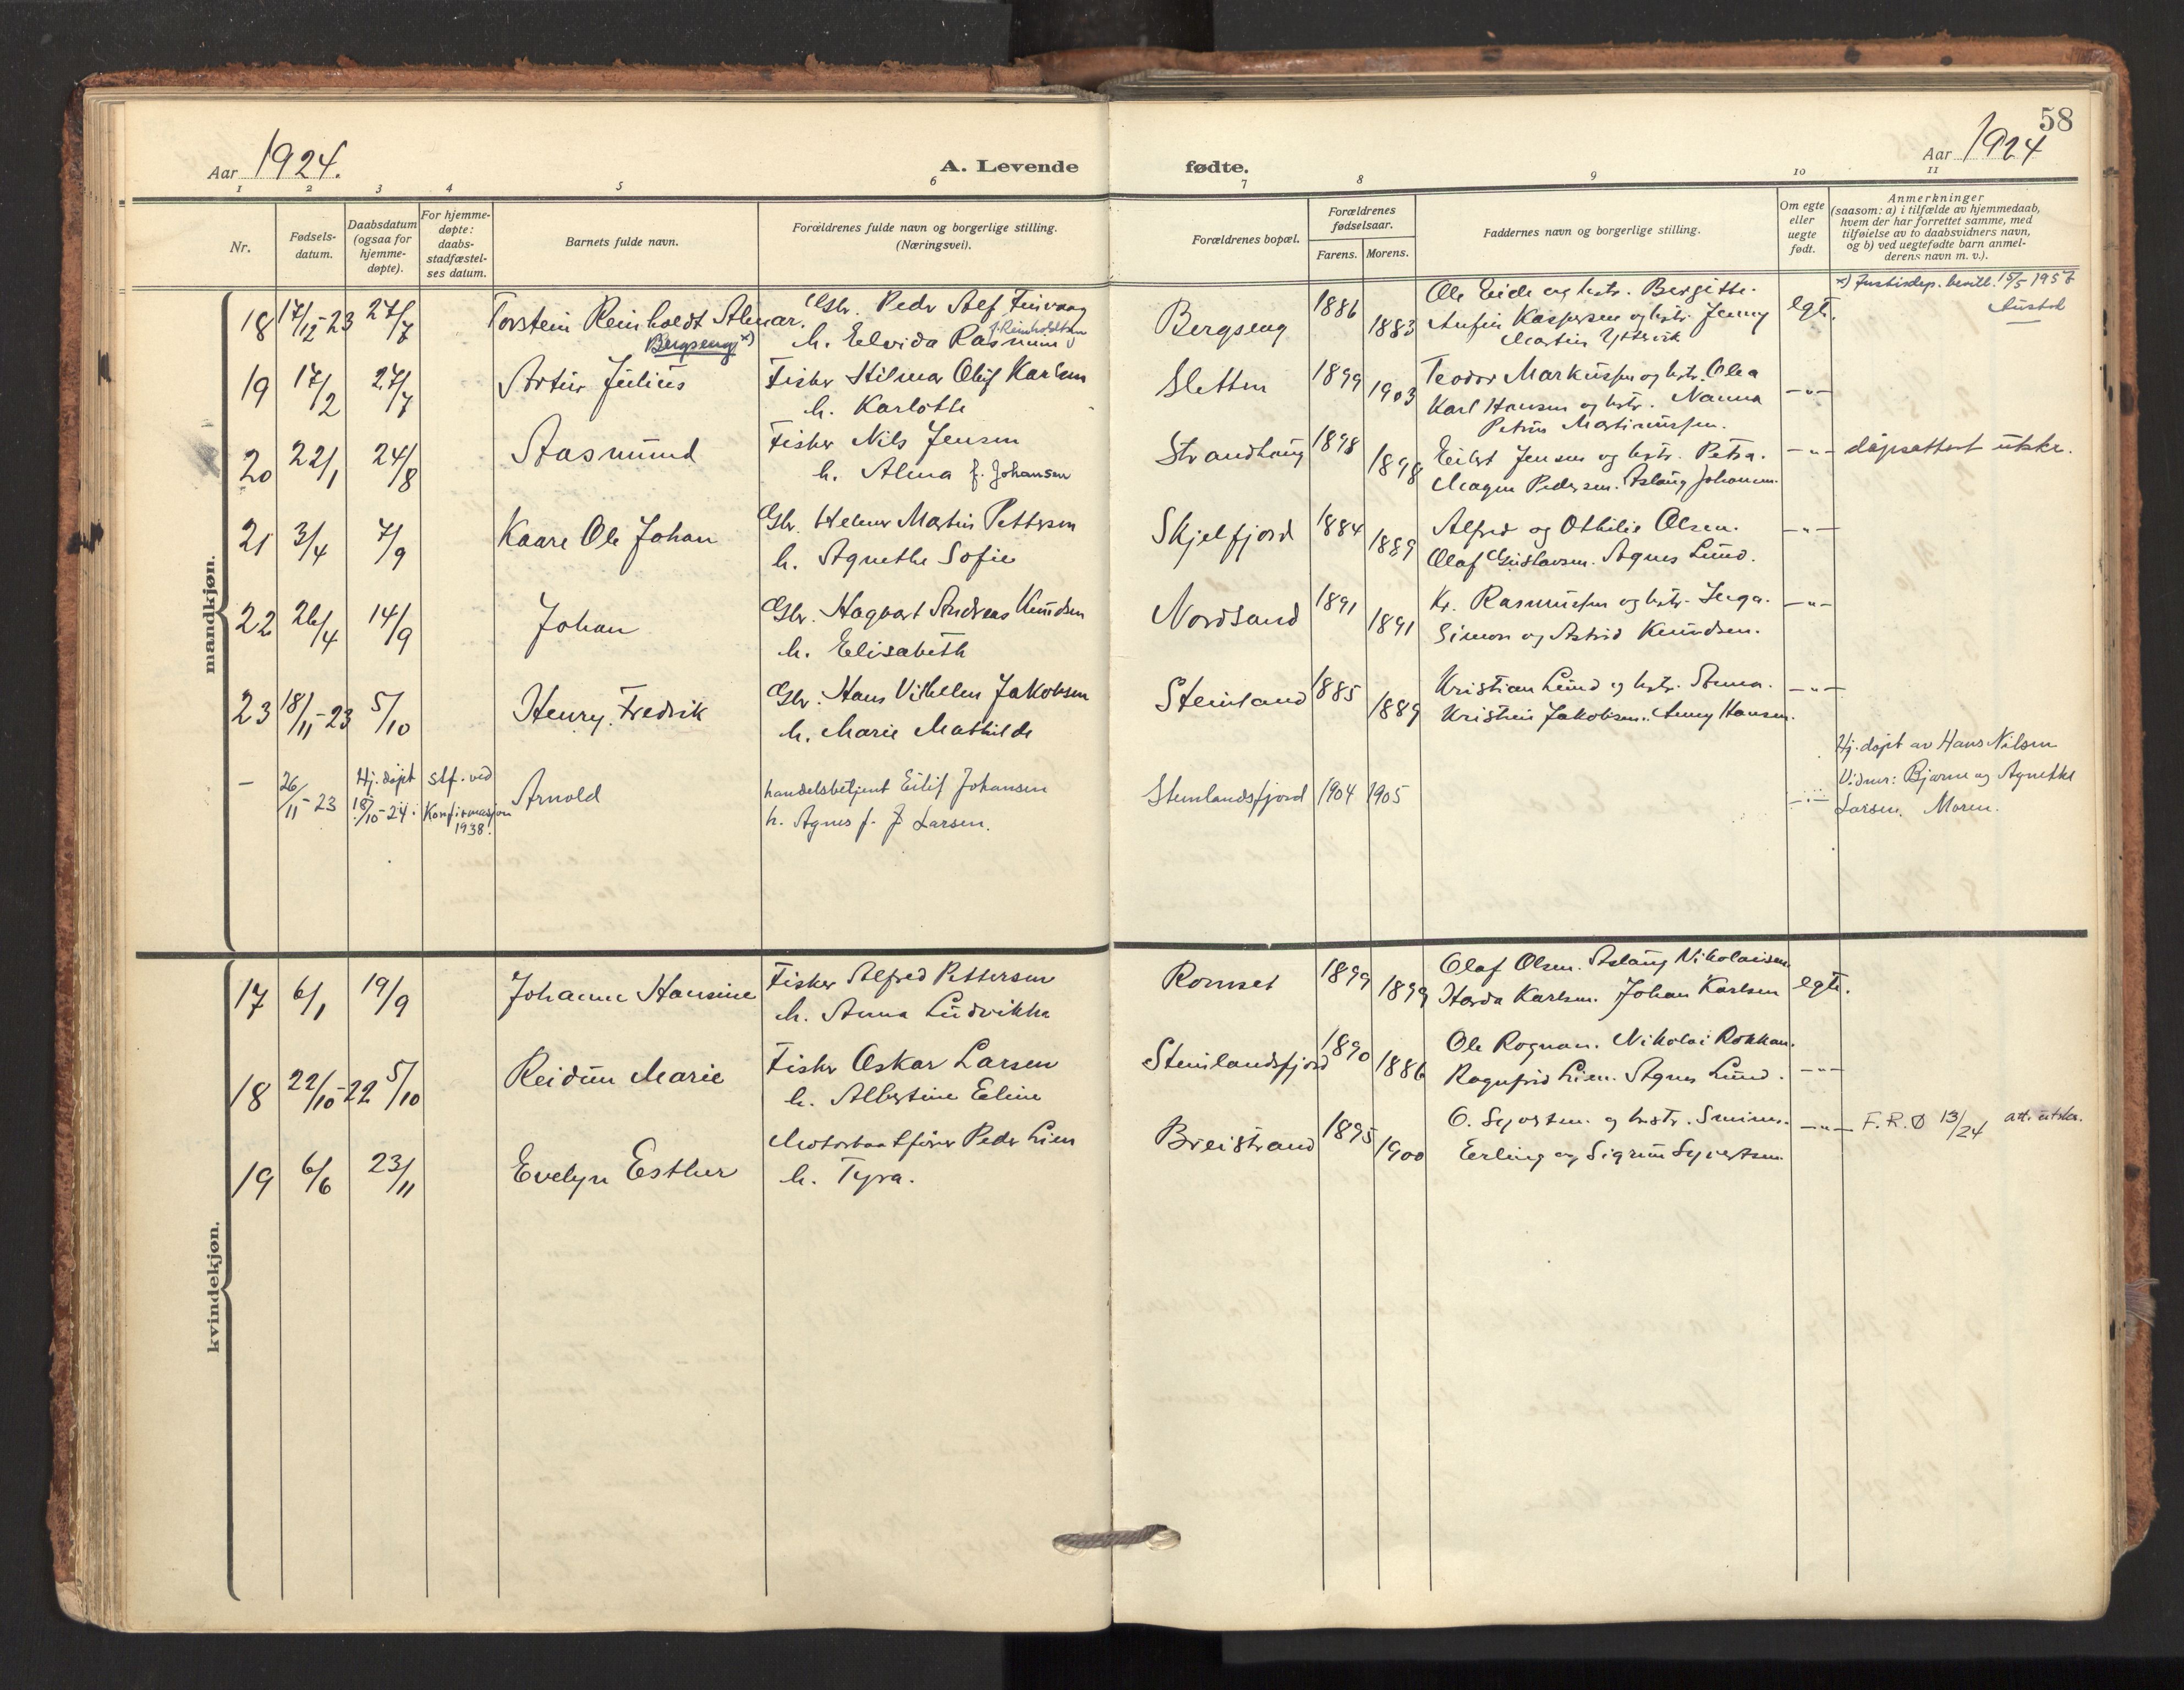 58
Aar 1924.
A. Levende
fødte.
Aar 1924
1 2 3 4 5 6 7 8 9 10 11
Nr.
Fødsels-
datum.
Daabsdatum
(ogsaa for
hjemme-
døpte).
For hjemme-
døpte:
daabs-
stadfæstel-
ses datum.
Barnets fulde navn.
Forældrenes fulde navn og borgerlige stilling.
(Næringsvei).
Forældrenes bopæl.
Forældrenes
fødselsaar.
Farens. Morens.
Faddernes navn og borgerlige stilling.
Om egte
eller
uegte
født.
Anmerkninger
(saasom: a) i tilfælde av hjemmedaab,
hvem der har forrettet samme, med
tilføielse av to daabsvidners navn,
og b) ved uegtefødte barn anmel-
derens navn m. v.).
mandkjøn.
18 17/12-23 27/7 Torstein Reinholdt Almar. Gbr. Peder Alf Finvaag Bergseng 1886 Ole Eide og hstr. Bergitte. egte. x) Justisdep. bevill. 15/5 1957
Bergseng x) h. Elvida 1883 Anfin Kaspersen og hstr. Jenny
f. Reinholdtsen Martin Yttervik
19 17/2 27/7 Artur Julius Fisker Hilmar Oluf Karlsen Sletten 1899 Teodor Markussen og hstr. Olea -"-
h. Karlotte 1903 Karl Hansen og hstr. Nanna
Petrus Matinussen.
20 22/1 24/8 Aasmund Fisker Nils Jensen Strandhaug 1898 Eilert Jensen og hstr. Petra. -"- dåpsattest utskr.
h. Alma f. Johansen 1898 Magna Pedersen. Aslaug Johansen.
21 3/4 7/9 Kaare Ole Johan Gbr. Helmer Martin Pettersen Skjelfjord 1884 Alfred og Othilie Olsen. -"-
h. Agnethe Sofie 1889 Olaf Gustavsen. Agnes Lund.
22 26/4 14/9 Johan Gbr. Hagbart Andreas Knudsen Nordsand 1891 Kr. Rasmussen og hstr. Inga. -"-
h. Elisabeth 1891 Simon og Astrid Knudsen.
23 18/11-23 5/10 Henry Fredrik Gbr. Hans Vilhelm Jakobsen Steinland 1885 Kristian Lund og hstr. Anna. -"-
h. Marie Mathilde 1889 Kristine Jakobsen. Anny Hansen.
- 26/11-23 Hj. døpt 18/10-24. stf. ved Konfirmasjon 1938. Arnold handelsbetjent Eilif Johansen Steinlandsfjord 1904 1905 -"- Hj. døpt av Hans Nilsen
h. Agnes f. J Larsen. Vidner: Bjarne og Agnethe
Larsen. Moren.
kvindekjøn.
17 6/1 19/9 Johanne Hansine Fisker Alfred Pettersen Romset 1899 Olaf Olsen. Aslaug Nikolaisen. egte.
h. Anna Ludvikke 1899 Harda Karlsen. Johan Karlsen
18 22/10-22 5/10 Reidun Marie Fisker Oskar Larsen Steinlandsfjord 1890 Ole Rognan. Nikolai Rokkan. -"-
h. Albertine Eline 1886 Ragnfrid Lien. Agnes Lund.
19 6/6 23/11 Evelyn Esther Motorbaatfører Peder Lien Breistrand 1895 O. Syvertsen og hstr. -"- F.R.Ø 13/24 att. utskr.
h. Tyra. 1900 Erling og Sigrun Syvertsen